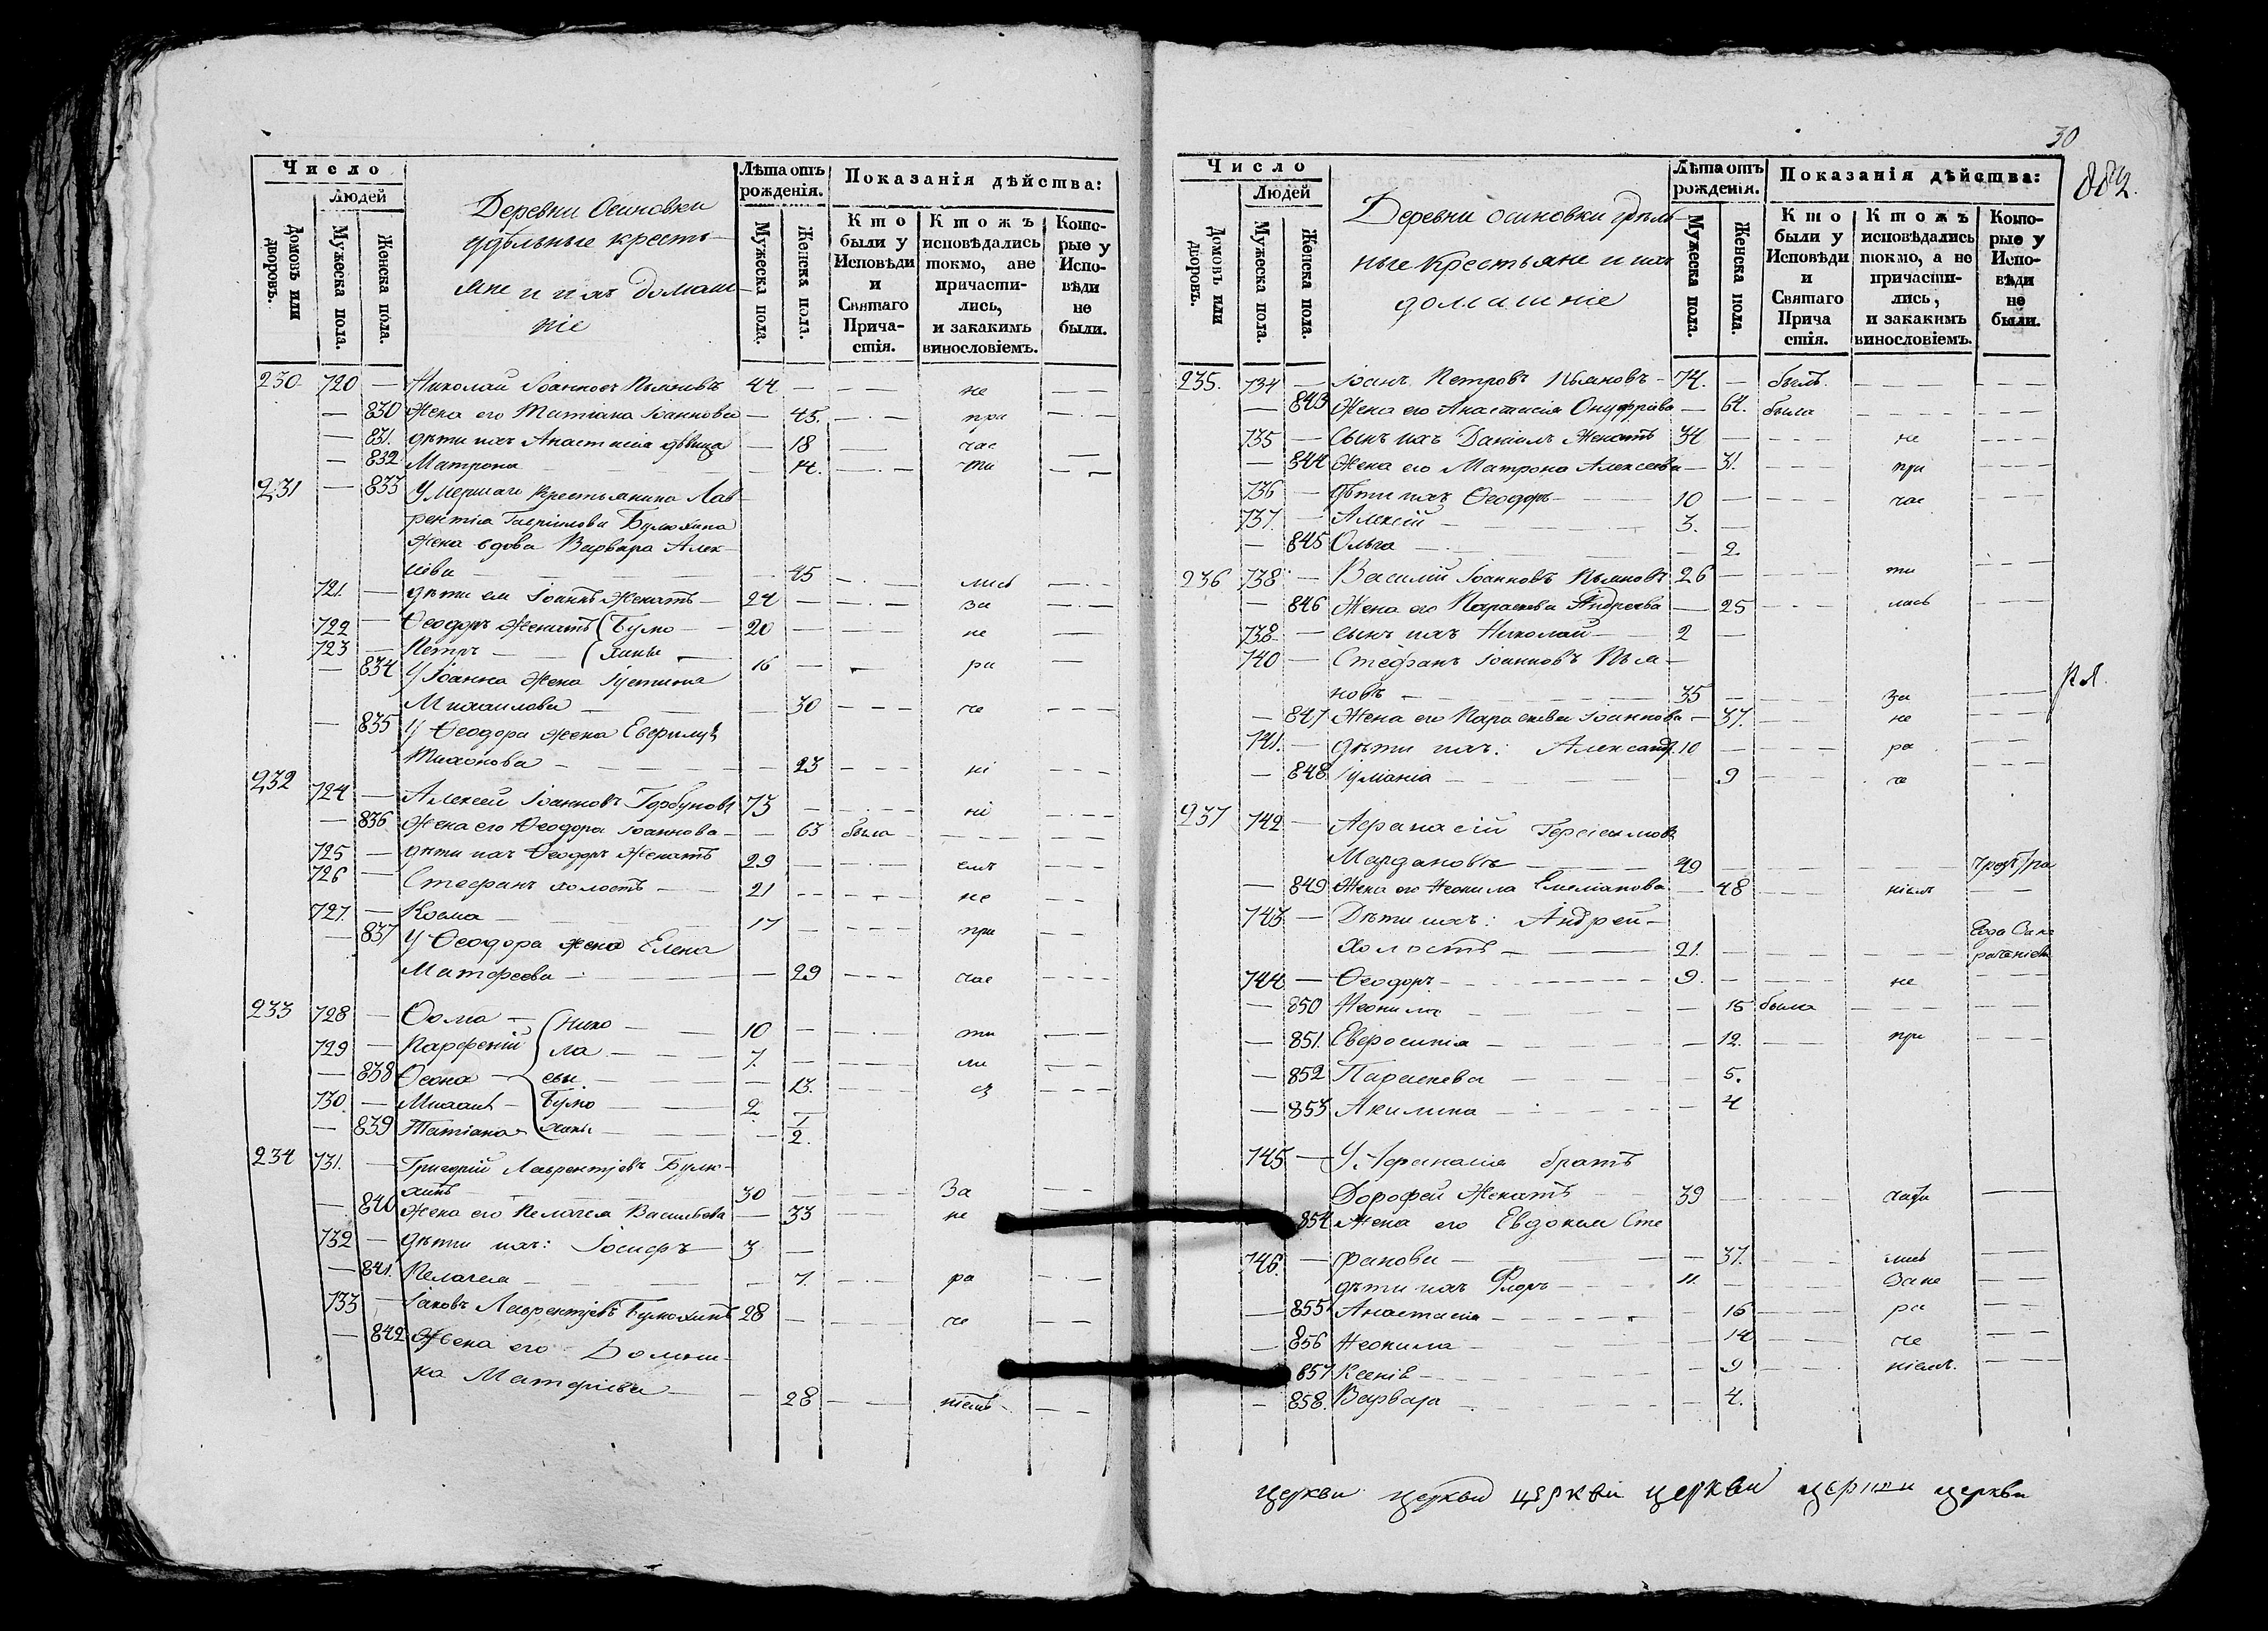 Число
Людей
Домовъ или дворовъ.
Мужеска пола.
Женска пола.
Деревни Осиновки
удѣльные кресть-
яне и ихъ домаш-
ніе
Лѣта отъ рожденія.
Мужеска пола.
Женска пола.
Показанія дѣйства:
Кто были у Исповѣди и Святаго Прича-стія.
Ктожъ исповѣдались токмо, ане причасти-лись, и закакимъ винословіемъ.
Кото-рые у Испо-вѣди не были.
230 720 — Николай Іоанновъ Пьяновъ 44 — не —
— 830 Жена его Татіана Іоаннова — 45. — при —
— 831. дѣти ихъ Анастасія дѣвица — 18 — час —
— 832 Матрона — 14. — ти —
231 — 833 Умершаго крестьянина Лав-
рентія Гавріилова Булюхина
жена вдова Варвара Алек-
сіева — 45 — лись —
721. — дѣти ея Іоаннъ женатъ — 24 — за —
722 — Ѳеодоръ женатъ (Булю — 20 — не —
723 — Петръ — (хины — 16 — ра —
— 834 У Іоанна жена Іустина
Михаилова — 30 — че —
— 835 У Ѳеодора жена
Тихонова — 23 — ні —
232 724 — Алексей Іоанновъ Горбуновъ 73 — ні —
— 836 Жена его Ѳеодора Іоаннова — 63 была —
725 — дѣти ихъ Ѳеодоръ женатъ 29 — емъ —
726 — Стефанъ холостъ — 21 — не —
727. — Косма — 17 — при —
— 837 У Ѳеодора жена Елена
Матфеева — 29 — час —
233 728 — Ѳома — (Нико — 10 — ти —
729 — Парфеній ла — 7. — ли —
— 838 Ѳеона — евы — 13. — сь —
730. — Михаилъ — Булю — 2 —
— 839 Татіана — хины — 1/2
234 731. — Григорій Лаврентьевъ Булю-
хинъ — 30 — За —
— 840 жена его Пелагея Васильева — 33 — не
732 — дѣти ихъ: Іосифъ — 3 —
— 841. Пелагея — 7. — ра —
733 — Іаковъ Лаврентьевъ Булюхинъ 28 — че —
— 842 Жена его Домни-
ка Матфіева — 28 — ніемъ —
30
882.
Число
Людей
Домовъ или дворовъ.
Мужеска пола.
Женска пола.
Деревни осиновки удѣль-
ные крестьяне и ихъ
домашніе
Лѣта отъ рожденія.
Мужеска пола.
Женска пола.
Показанія дѣйства:
Кто были у Исповѣди и Святаго Прича стія.
Ктожъ исповѣдались токмо, а не причасти-лись, и закакимъ винословіемъ.
Кото-рые у Испо-вѣди не были.
235. 734 — Іоанъ Петровъ Пьяновъ — 74. — былъ —
— 843 Жена его Анастасія Онуфріева — 64. была —
735 — Сынъ ихъ Даніилъ женатъ 34 — не —
— 844 Жена его Матрона Алексеева — 31. — при —
736 — дѣти ихъ Ѳеодоръ — 10 — час —
737. — Алексій — 3. —
— 845 Ольга — 2.
236 738 — Василій Іоанновъ Пьяновъ 26 — ти —
— 846 Жена его Параскева Андреева — 25 — лись —
738 — сынъ ихъ Николай — 2 —
740 — Стефанъ Іоанновъ Пья-
новъ — 35 — За —
— 847 Жена его Параскева Іоаннова — 37. — не —
741. — дѣти ихъ: Александръ 10 — ра —
— 848. Іуліанія — 9 — че
237 742 — Афанасій
— 49 —
— 849 Жена его Неонила Емеліанова — 48 — ніемъ —
743. — Дѣти ихъ: Андрей —
холостъ — 21. —
744 — Ѳеодоръ — 9. — не —
— 850 Неонила — 15 была —
— 851. Евфросинія — 12. — при —
— 852 Параскева — 5.
— 853 Акилина — 4
745 — У Афанасія братъ
Дорофей женатъ 39 — части —
854 Жена его Евдокія Сте
фанова — 37. — лись —
746. — дѣти ихъ Флоръ — 11. — Зане —
— 855 Анастасія — 16 — ра —
— 856 Неонила — 14 — че —
857 Ксенія — 9 — ніемъ. —
— 858. Варвара — 4.
церкви церкви церкви церкви церкви церкви